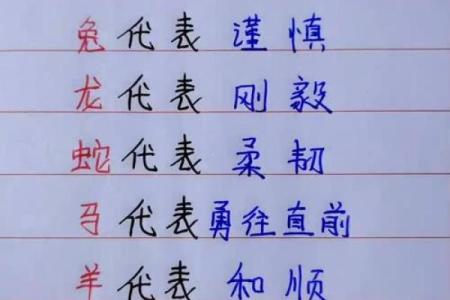 兔代表谨慎
龙代表刚毅
蛇代表柔韧
马代表勇往直前
羊代表和顺